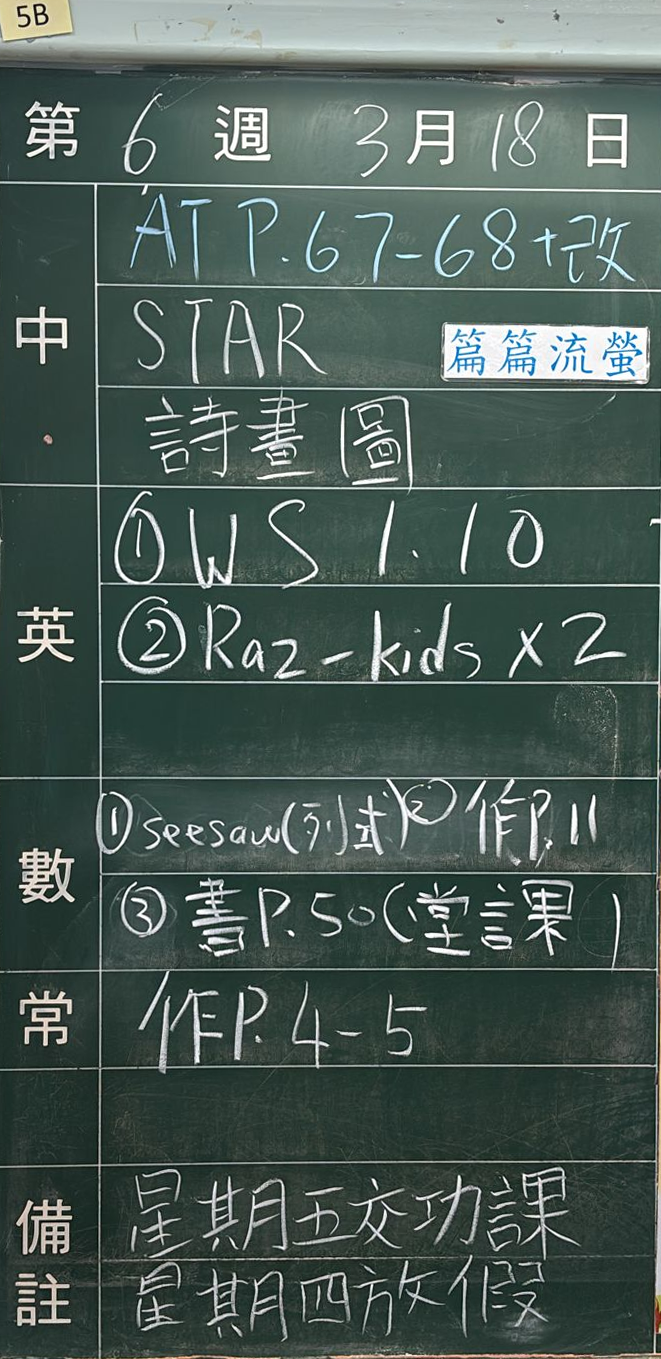 5B
第 6 週 3 月 18 日
中
AT P.67-68+改
STAR 篇篇流螢
詩畫圖
英
① WS 1.10
② Raz-kids x2
數
① seesaw(列式) ② 作P.11
③ 書P.50(堂課)
常
作P.4-5
備註
星期五交功課
星期四放假